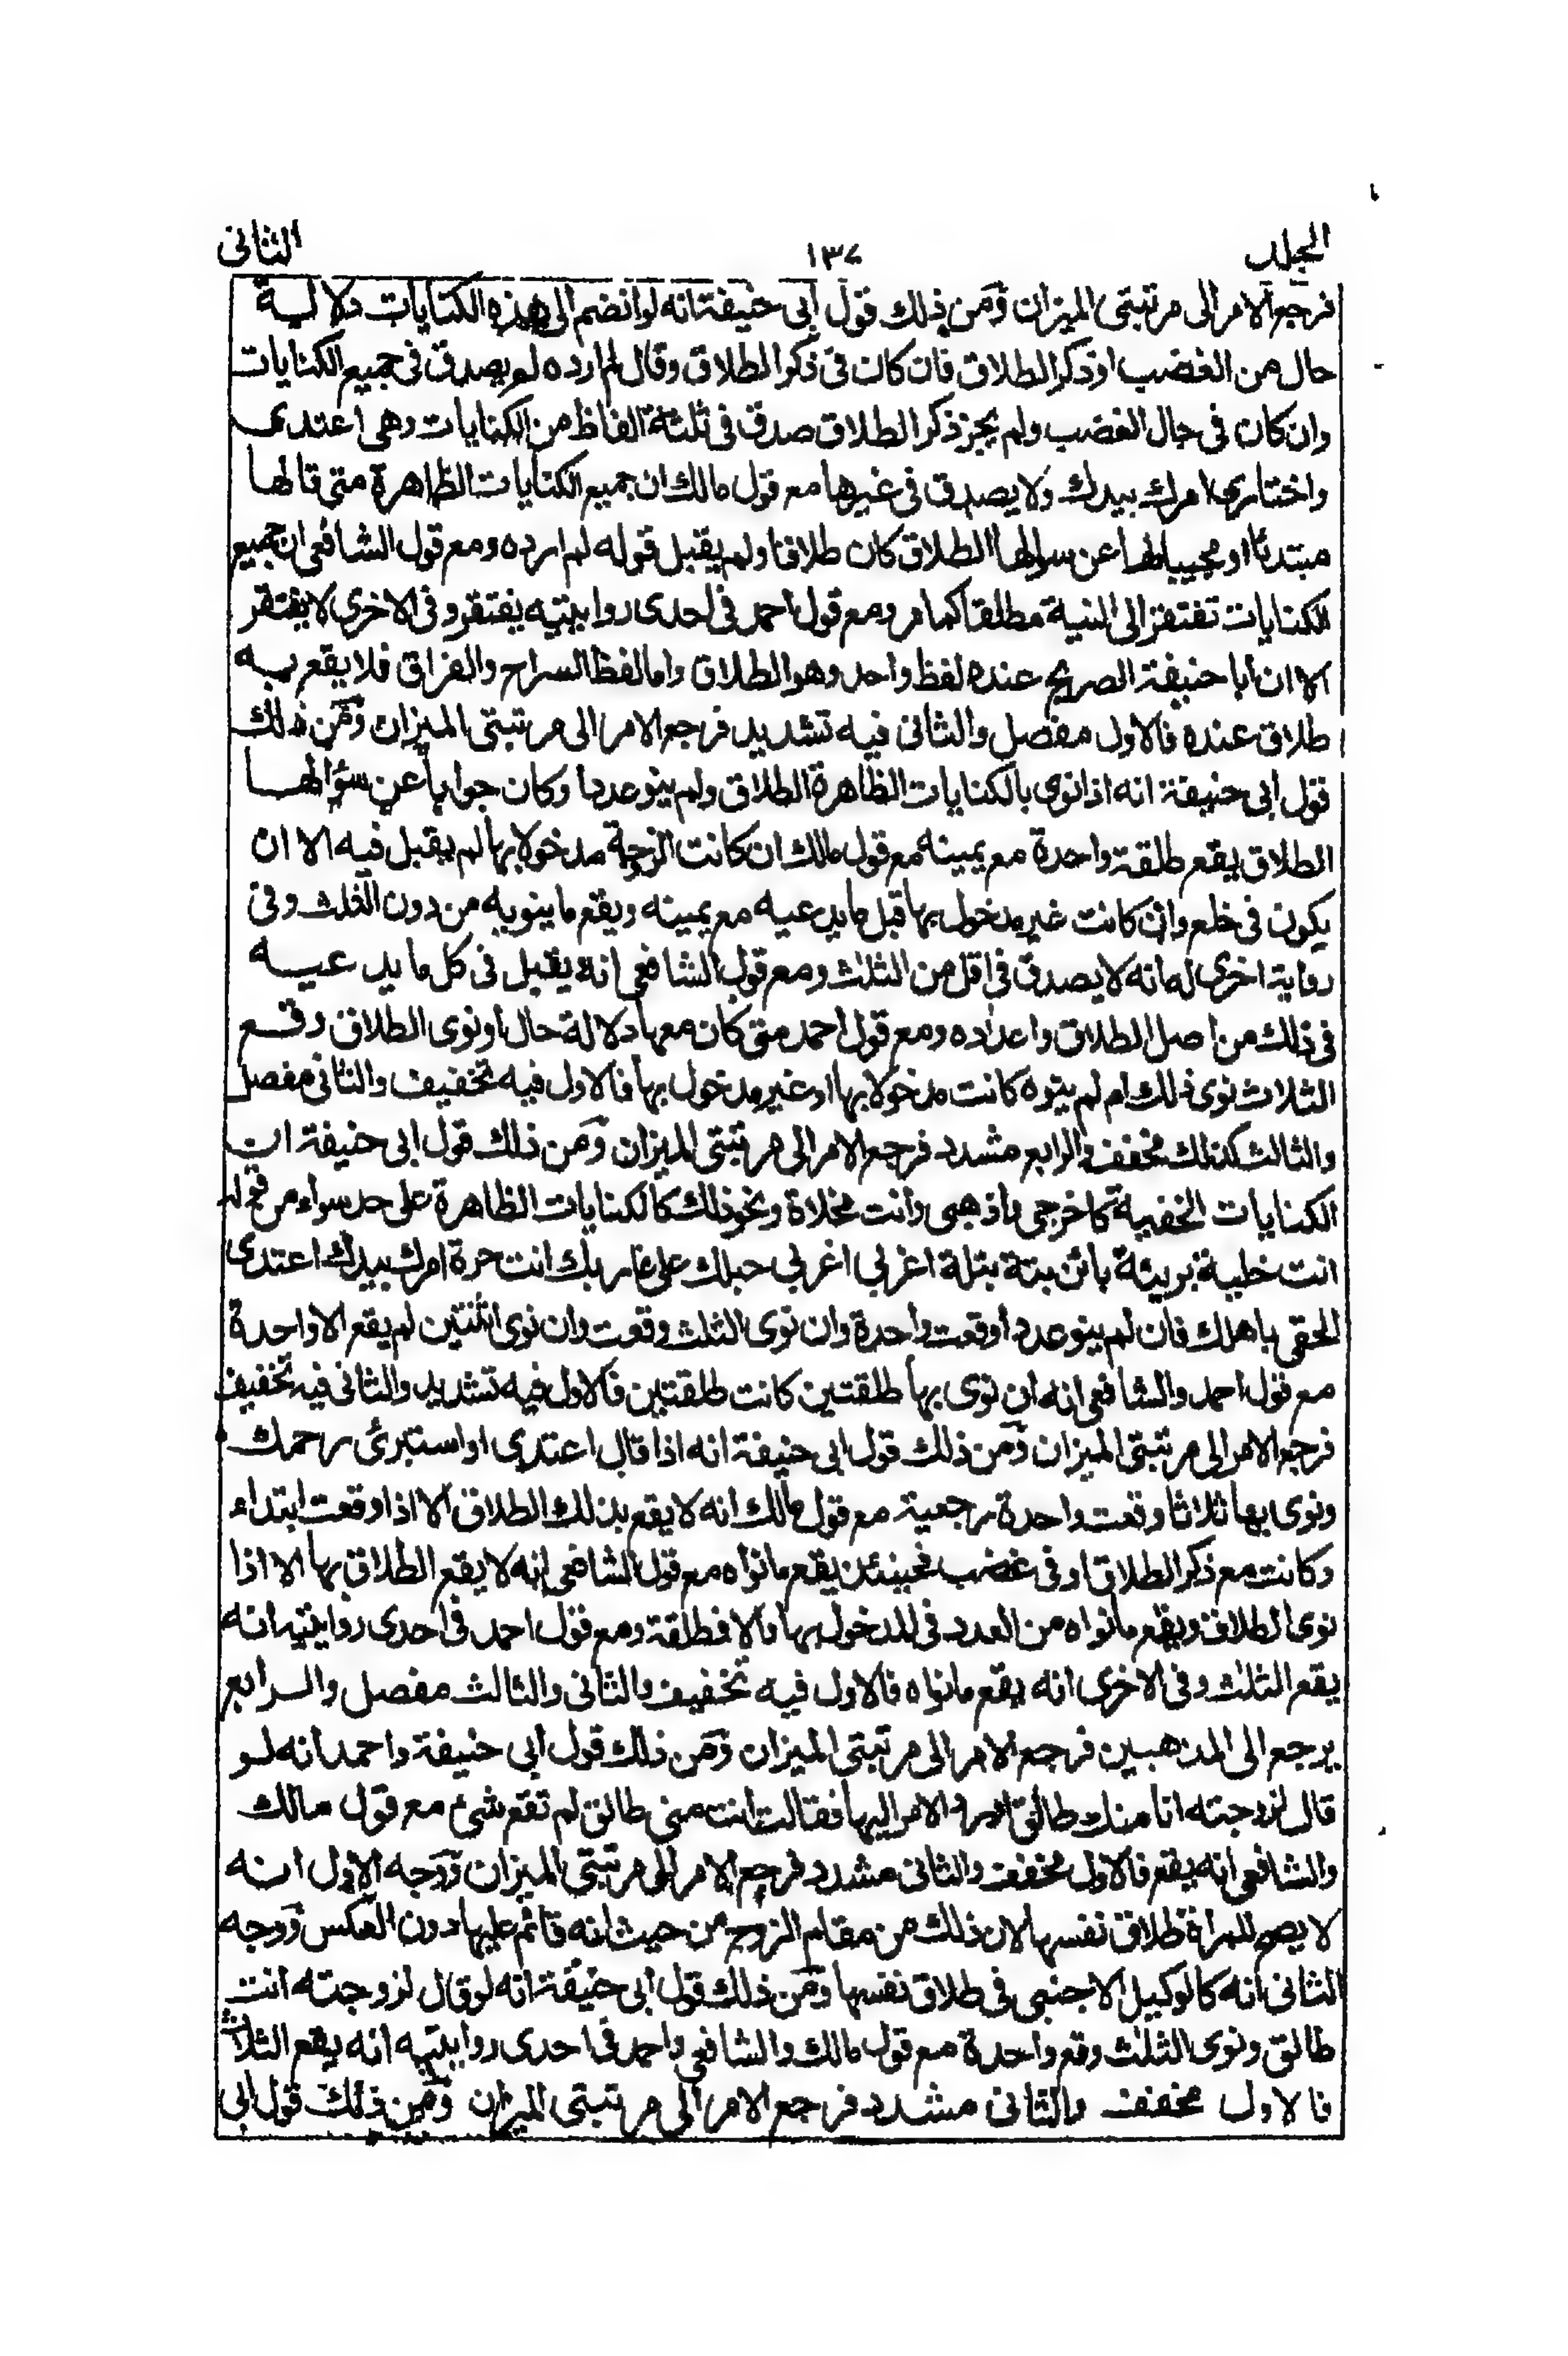 المجلد ١٣٧ الثانى
فرجع الامر الى مرتبتى الميزان ومن ذلك قول ابى حنيفة انه لو انضم الى هذه الكنايات دلالية
حال من الغضب او ذكر الطلاق فان كان فى ذكر الطلاق وقال لم ارده لم يصدق فى جميع الكنايات
وان كان فى حال الغضب ولم يجز ذكر الطلاق صدق فى ثلثة الفاظ من الكنايات وهى اعتدى
واختارى امرك بيدك ولا يصدق فى غيرها مع قول مالك ان جميع الكنايات الظاهرة متى قالها
مبتدئا او مجيبا لها عن سوالها الطلاق كان طلاقا ولم يقبل قوله لم ارده ومع قول الشافعى ان جميع
الكنايات تفتقر الى النية مطلقا كما مر ومع قول احمد فى احدى روايتيه يفتقر وفى الاخرى لا يفتقر
الا ان ابا حنيفة الصريح عنده لفظ واحد وهو الطلاق واما لفظ السراح والفراق فلا يقع به
طلاق عنده فالاول مفصل والثانى فيه تشديد فرجع الامر الى مرتبتى الميزان ومن ذلك
قول ابى حنيفة انه اذا نوى بالكنايات الظاهرة الطلاق ولم ينو عددا وكان جوابا عن سؤالها
الطلاق يقع طلقة واحدة مع يمينه مع قول مالك ان كانت الزوجة مدخولا بها لم يقبل فيه الا ان
يكون فى خلع وان كانت غير مدخول بها قبل ما يدعيه مع يمينه ويقع ما ينويه من دون الثلث وفى
رواية اخرى له انه لا يصدق فى اقل من الثلث ومع قول الشافعى انه يقبل فى كل ما يدعيه
فى ذلك من اصل الطلاق واعداده ومع قول احمد متى كان معها دلالة حال او نوى الطلاق وقع
الثلاث نوى ذلك ام لم ينوه كانت مدخولا بها او غير مدخول بها فالاول فيه تخفيف والثانى مفصل
والثالث كذلك مخفف والرابع مشدد فرجع الامر الى مرتبتى الميزان ومن ذلك قول ابى حنيفة ان
الكنايات الخفية كاخرجى واذهبى وانت مخلاة ونحو ذلك كالكنايات الظاهرة على حد سواء من قوله
انت خلية بريئة بائن بتة بتلة اغربى اغربى حبلك على غاربك انت حرة امرك بيدك اعتدى
الحقى باهلك فان لم ينو عددا وقعت واحدة وان نوى الثلث وقعت وان نوى اثنتين لم يقع الا واحدة
مع قول احمد والشافعى انه ان نوى بها طلقتين كانت طلقتين فالاول فيه تشديد والثانى فيه تخفيف
فرجع الامر الى مرتبتى الميزان ومن ذلك قول ابى حنيفة انه اذا قال اعتدى او استبرئى رحمك
ونوى بها ثلاثا وقعت واحدة رجعية مع قول مالك انه لا يقع بذلك الطلاق الا اذا وقعت ابتداء
وكانت مع ذكر الطلاق او فى غضب فحينئذ يقع ما نواه مع قول الشافعى انه لا يقع الطلاق بها الا اذا
نوى الطلاق ويقع ما نواه من العدد فى المدخول بها والا فطلقة ومع قول احمد فى احدى روايتيه انه
يقع الثلث وفى الاخرى انه يقع ما نواه فالاول فيه تخفيف والثانى والثالث مفصل والرابع
يرجع الى المذهبين فرجع الامر الى مرتبتى الميزان ومن ذلك قول ابى حنيفة واحمد انه لو
قال لزوجته انا منك طالق او رد الامر اليها فقالت انت منى طالق لم تقع شئ مع قول مالك
والشافعى انه يقع فالاول مخفف والثانى مشدد فرجع الامر الى مرتبتى الميزان ووجه الاول انه
لا يصح للمراة طلاق نفسها لان ذلك من مقام الزوج من حيث انه قائم عليها دون العكس ووجه
الثانى انه كالوكيل الاجنبى فى طلاق نفسها ومن ذلك قول ابى حنيفة انه لو قال لزوجته انت
طالق ونوى الثلث وقع واحدة مع قول مالك والشافعى واحمد فى احدى روايتيه انه يقع الثلاث
فالاول مخفف والثانى مشدد فرجع الامر الى مرتبتى الميزان ومن ذلك قول ابى